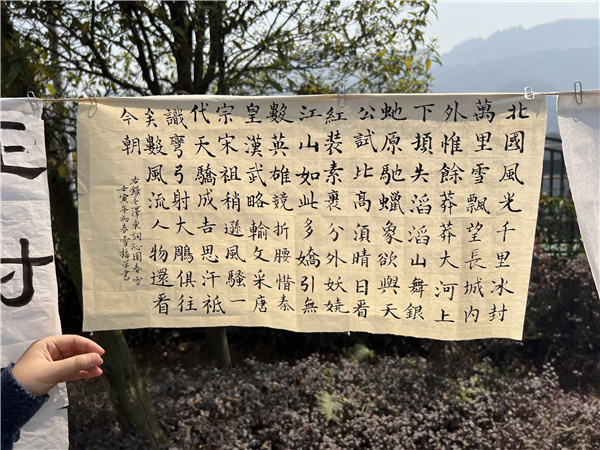 北國風光千里冰封
萬里雪飄望長城內
外惟餘莽莽大河上
下頓失滔滔山舞銀
虵原馳蠟象欲與天
公試比高須晴日看
紅裝素裹分外妖嬈
江山如此多嬌引無
數英雄競折腰惜秦
皇漢武略輸文采唐
宗宋祖稍遜風騷一
代天驕成吉思汗祗
識彎弓射大鵰俱往
矣數風流人物還看
今朝
右錄毛澤東詞沁園春雪
壬寅年初春雪梅書